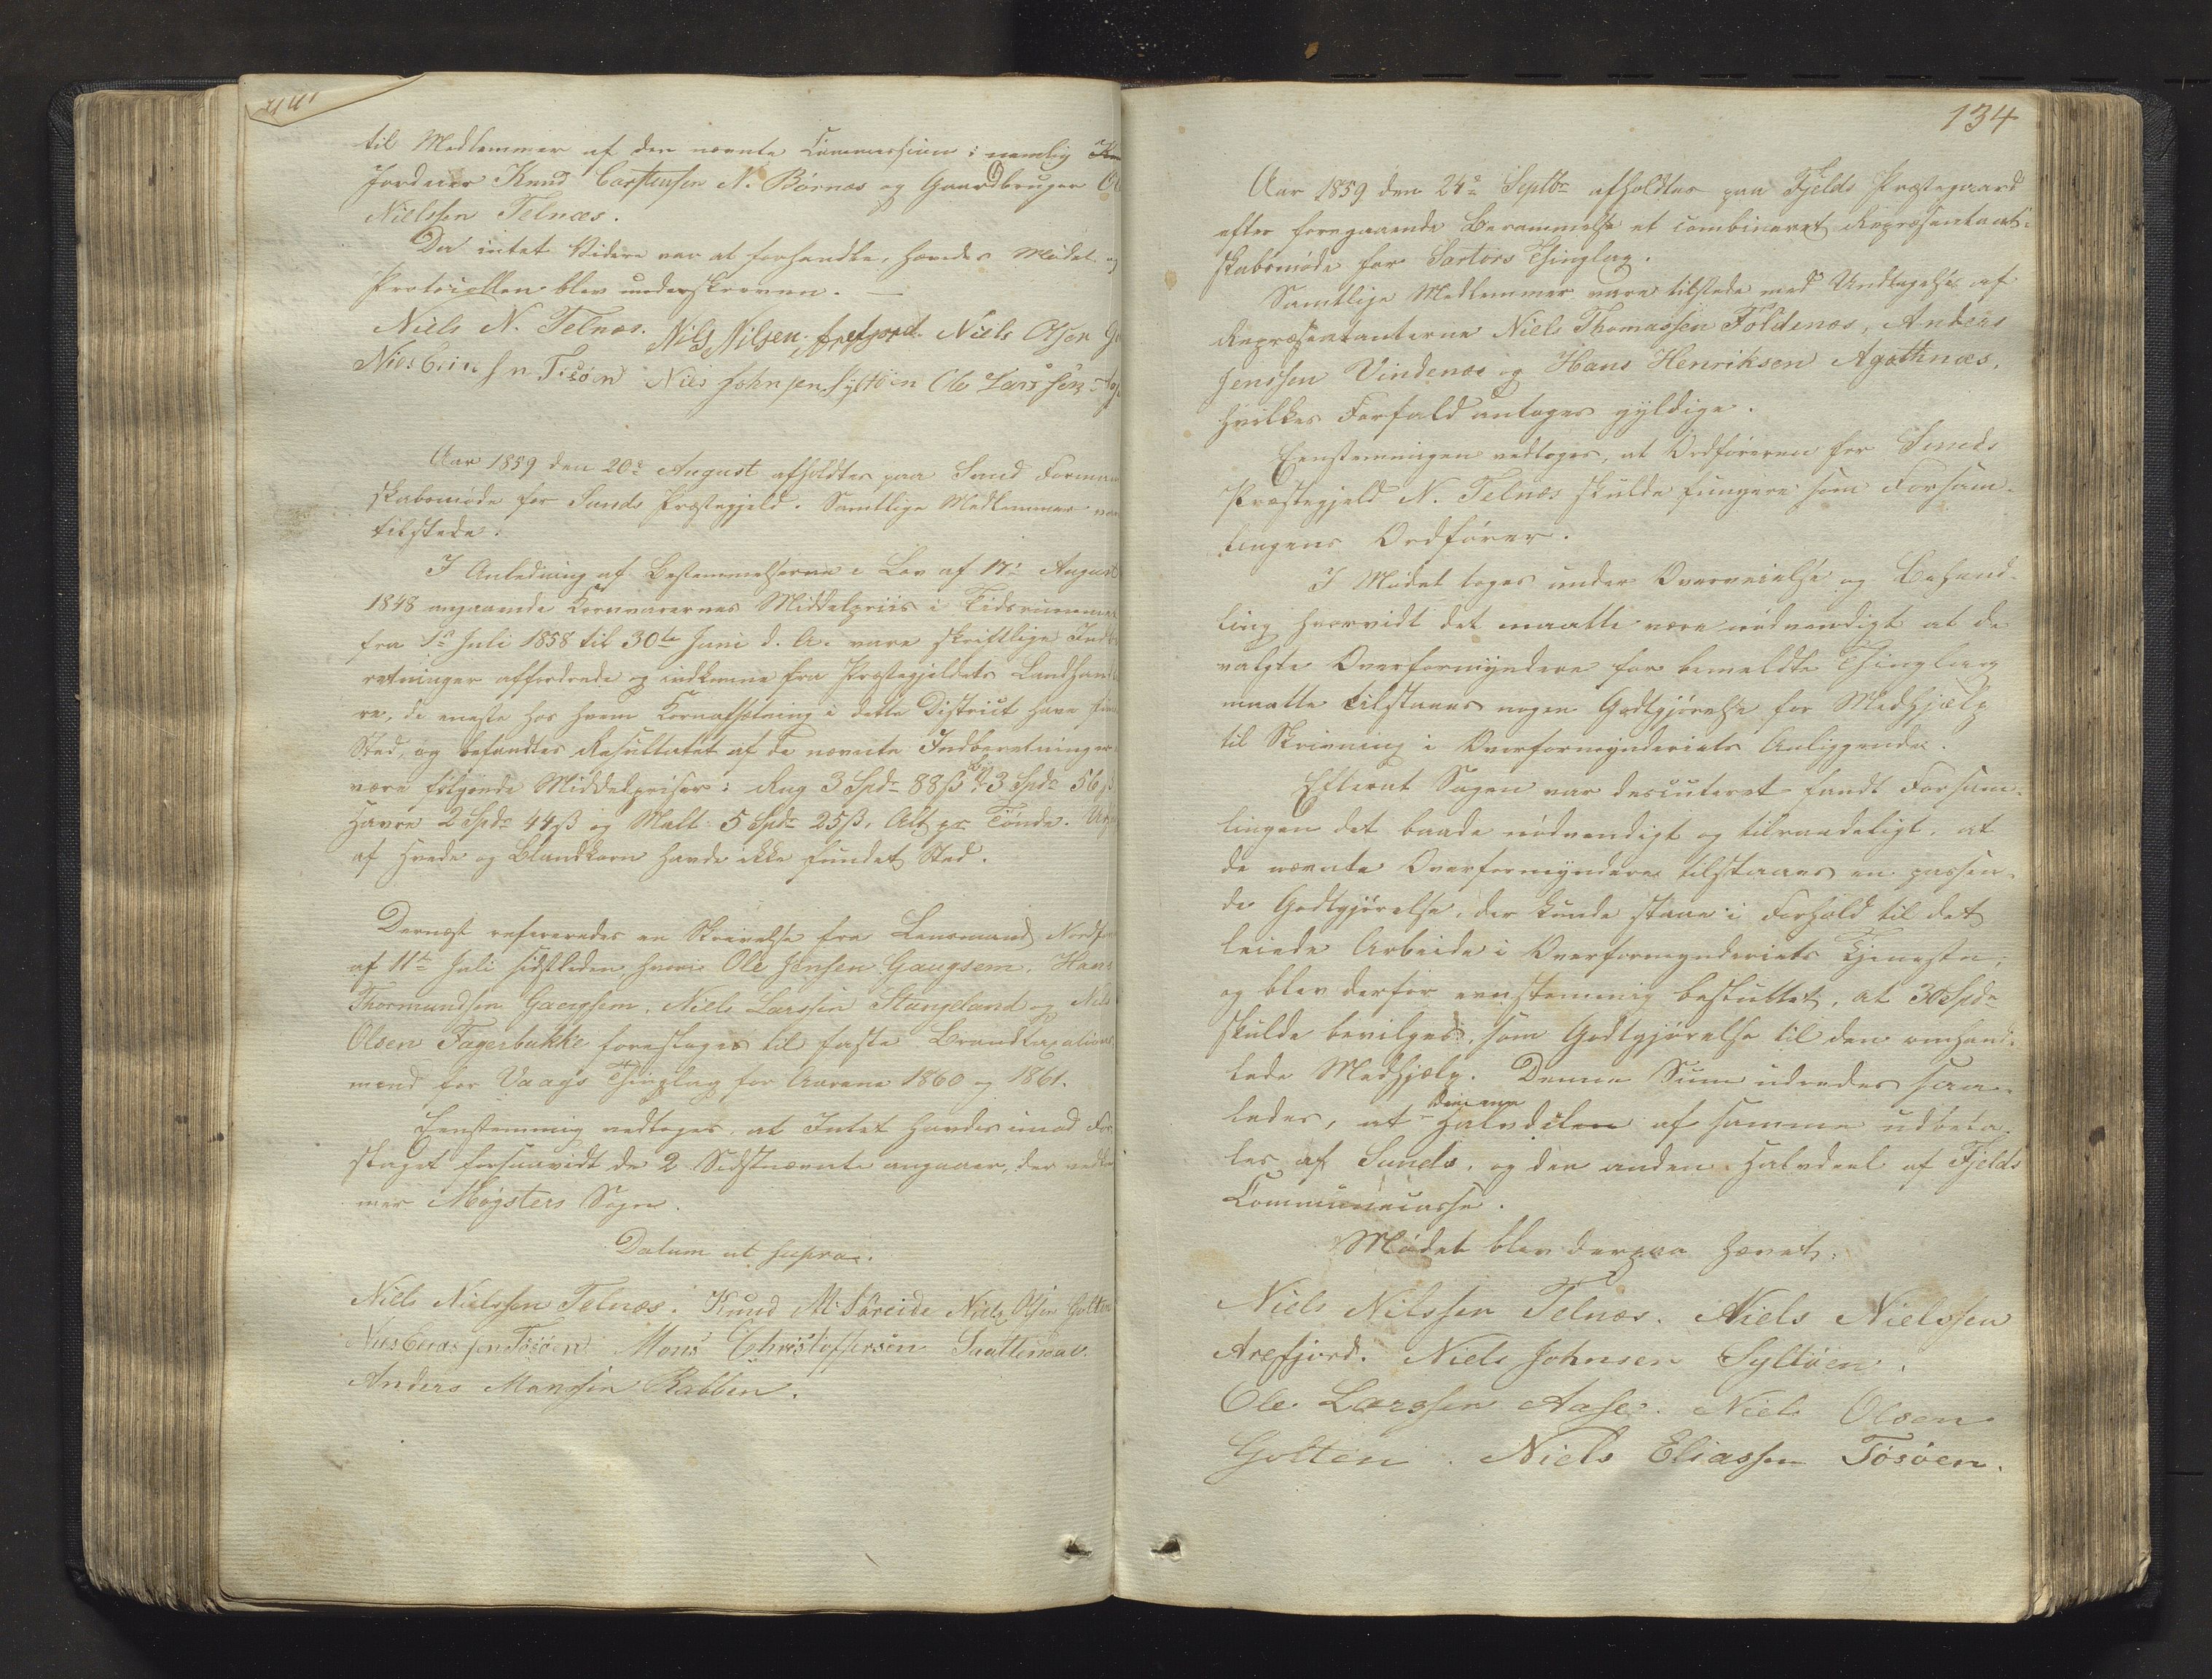 til Medlemmer af den nævnte Commission: nemlig
Jordeier Knud Carstensen N. Börnæs og Gaardbruger
Nielssen Telnæs.
Da intet Videre var at forhandle, hævedes Mödet og
Protocollen blev underskreven. —
Niels N. Telnæs. Nils Nilsen Arefjord. Niels Olsen
Niels Eliassen Tösöen Niels Johnsen Syltöen Ole Larssen
Aar 1859 den 20de August afholdtes paa Sund Formand
skabsmöde for Sunds Præstegjeld. Samtlige Medlemmer var
tilstede.
I Anledning af Bestemmelserne i Lov af 17de August
1848 angaaende Kornvarernes Middelpriis i Tidsrummet
fra 1ste Juli 1858 til 30te Juni d. A. vare skriftlige Indbe
retninger affordrede og indkomne fra Præstegjeldets Landhand
re, de eneste hos hvem Kornafsætning i dette District have
Sted, og befandtes Resultatet af de nævnte Indberetninger
være fölgende Middelpriser: Rug 3 Spd 88 ß, Byg 3 Spd 56 ß
Havre 2 Spd 44 ß og Malt 5 Spd 25 ß, Alt pr Tönde.
af Hvede og Blandkorn havde ikke fundet Sted.
Dernæst refereredes en Skrivelse fra Lensmand
af 11te Juli sidstleden hvori Ole Jensen Gaugsem, Hans
Thormundsen Gaugsem, Niels Larssen Stangeland og Niels
Olsen Fagerbakke foresloges til faste Brandtaxations
mænd for Vaags Thinglag for Aarene 1860 og 1861.
Eenstemmig vedtoges, at Intet havdes imod For
slaget forsaavidt de 2 Sidstnævnte angaaer, der
mer Møgsters Sogn.
Datum ut supra.
Niels Nielssen Telnæs. Knud M. Söreide Niels Olsen Golten
Niels Eliassen Tösöen. Mons Christoffersen
Anders Monssen Rabben.
134
Aar 1859 den 24de Septbr afholdtes paa Fjelds Præstegaard
efter foregaaende Berammelse et combineret Repræsentant-
skabsmöde for Sartors Thinglag.
Samtlige Medlemmer vare tilstede med Undtagelse af
Repræsentanterne Niels Thomassen Foldenæs, Anders
Jenssen Vindenæs og Hans Henriksen Agothnæs,
hvilkes Forfald antoges gyldige.
Eenstemmigen vedtoges, at Ordföreren for Sunds
Præstegjeld N. Telnæs skulde fungere som Forsam-
lingens Ordförer.
I Mödet toges under Overveielse og Behand-
ling hvorvidt det maatte være nödvendigt at de
valgte Overformyndere for bemeldte Thinglaug
maatte tilstaaes nogen Godtgjörelse for Medhjælp
til Skrivning i Overformynderiets Anliggender.
Efterat Sagen var descuteret fandt Forsam-
lingen det baade nödvendigt og tilraadeligt, at
de nævnte Overformyndere tilstaaes en passen-
de Godtgjörelse, der kunde staae i Forhold til det
leiede Arbeide i Overformynderiets Tjeneste;
og blev derfor eenstemmig besluttet, at 30 Spd
skulde bevilges, som Godtgjörelse til den omhand-
lede Medhjælp. Denne Sum udredes saa-
ledes, at den ene Halvdelen af samme udbeta-
les af Sunds, og den anden Halvdeel af Fjelds
Communecasse.
Mödet blev derpaa hævet.
Niels Nilssen Telnæs. Niels Nielssen
Arefjord. Niels Johnsen Syltöen.
Ole Larssen Aase. Niels Olsen
Golten. Niels Eliassen Tösöen.